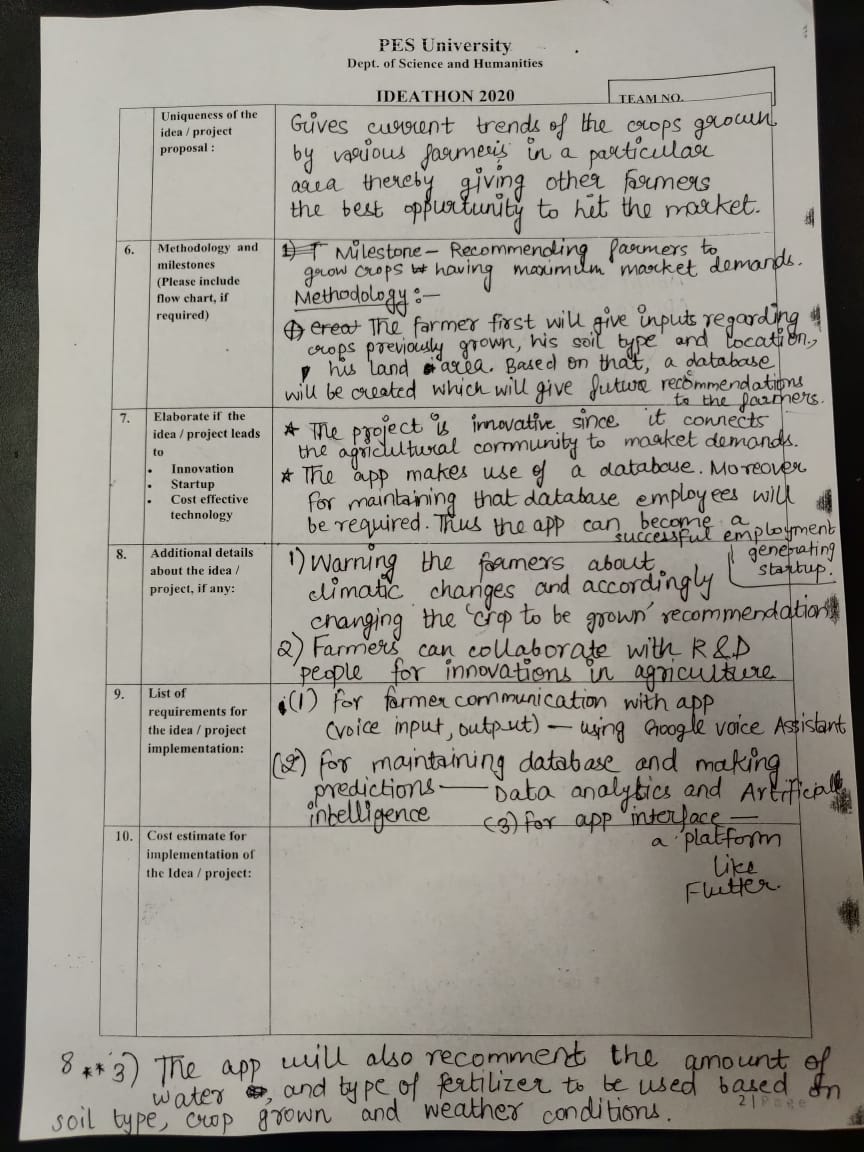 PES University
Dept. of Science and Humanities
IDEATHON 2020
TEAM NO.
Uniqueness of the
idea / project
proposal :
Gives current trends of the crops grown
by various farmers in a particular
area thereby giving other farmers
the best oppurtunity to hit the market.
6.
Methodology and
milestones
(Please include
flow chart, if
required)
Milestone - Recommending farmers to
grow crops having maximum market demands.
Methodology :-
The farmer first will give inputs regarding
crops previously grown, his soil type and location,
his land area. Based on that, a database
will be created which will give future recommendations
to the farmers.
7.
Elaborate if the
idea / project leads
to
• Innovation
• Startup
• Cost effective
technology
* The project is innovative since it connects
the agricultural community to market demands.
* The app makes use of a database. Moreover
for maintaining that database employees will
be required. Thus the app can become a
successful employment
generating
startup.
8.
Additional details
about the idea /
project, if any:
1) Warning the farmers about
climatic changes and accordingly
changing the 'crop to be grown' recommendation
2) Farmers can collaborate with R&D
people for innovations in agriculture
9.
List of
requirements for
the idea / project
implementation:
(1) for farmer communication with app
(voice input, output) - using Google voice Assistant
(2) for maintaining database and making
predictions - Data analytics and Artificial
intelligence
(3) for app interface -
a platform
like
Flutter.
10.
Cost estimate for
implementation of
the Idea / project:
8 ** 3) The app will also recomment the amount of
water, and type of fertilizer to be used based on
soil type, crop grown and weather conditions.
2 | Page